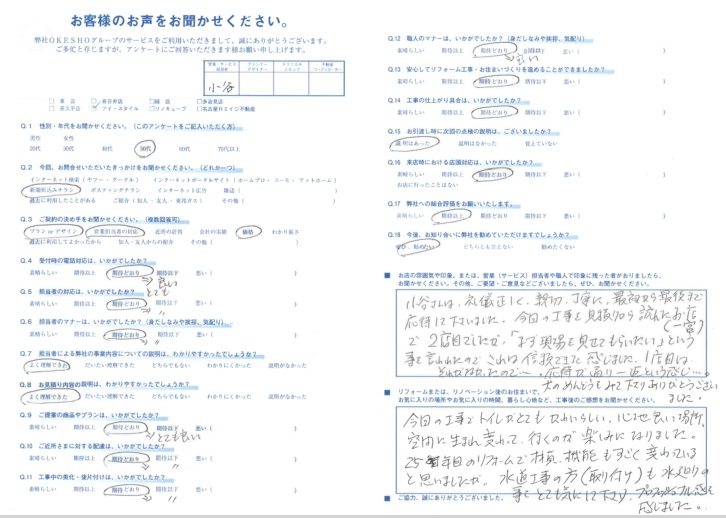 お客様のお声をお聞かせください。
弊社OKESHOグループのサービスをご利用いただきまして、誠にありがとうございます。
ご多忙と存じますが、アンケートにご回答いただきます様お願い申し上げます。
小谷
東店 春日井店 緑店 多治見店
長久手店 アイ・スタイル リノキューブ 名古屋Rエイジ不動産
Q.1 性別・年代をお聞かせください。(このアンケートをご記入いただく方)
男性 女性
20代 30代 40代 50代 60代 70代以上
Q.2 今回、お問合せいただいたきっかけをお聞かせください。(どれか一つ)
インターネット検索(ヤフー・グーグル) インターネットポータルサイト(ホームプロ・ニーヒ・アットホーム)
新聞折込みチラシ ポスティングチラシ インターネット広告 雑誌( )
過去に利用したことがある ご紹介(知人・友人・東邦ガス) その他( )
Q.3 ご契約の決め手をお聞かせください。(複数回答可)
プラン or デザイン 営業担当者の対応 近所の評判 会社の名前 価格 わかり易さ
過去に利用してよかったから 知人・友人からの紹介 その他( )
Q.4 受付時の電話対応は、いかがでしたか?
素晴らしい 期待以上 期待どおり 期待以下 悪い( )
良い
Q.5 担当者の対応は、いかがでしたか?
とても
素晴らしい 期待以上 期待どおり 期待以下 悪い( )
良い
Q.6 担当者のマナーは、いかがでしたか?(身だしなみや挨拶、気配り)
素晴らしい 期待以上 期待どおり 期待以下 悪い( )
〃
Q.7 担当者による弊社の事業内容についての説明は、わかりやすかったでしょうか?
よく理解できた だいたい理解できた どちらでもない わかりにくかった 説明がなかった
Q.8 お見積り内容の説明は、わかりやすかったでしょうか?
よく理解できた だいたい理解できた どちらでもない わかりにくかった 説明がなかった
Q.9 ご提案の商品やプランは、いかがでしたか?
素晴らしい 期待以上 期待どおり 期待以下 悪い( )
とても良い
Q.10 ご近所さまに対する配慮は、いかがでしたか?
素晴らしい 期待以上 期待どおり 期待以下 悪い( )
〃
Q.11 工事中の美化・後片付けは、いかがでしたか?
素晴らしい 期待以上 期待どおり 期待以下 悪い( )
〃
Q.12 職人のマナーは、いかがでしたか?(身だしなみや挨拶、気配り)
素晴らしい 期待以上 期待どおり 期待以下 悪い( )
良い
Q.13 安心してリフォーム工事・お住まいづくりを進めることができましたか?
素晴らしい 期待以上 期待どおり 期待以下 悪い( )
Q.14 工事の仕上がり具合は、いかがでしたか?
素晴らしい 期待以上 期待どおり 期待以下 悪い( )
Q.15 お引渡し時に次回の点検の説明は、ございましたか?
説明はあった 説明はなかった 覚えていない
Q.16 来店時における店頭対応は、いかがでしたか?
素晴らしい 期待以上 期待どおり 期待以下 悪い( )
お店に行ったことはない
Q.17 弊社への総合評価をお願いいたします。
素晴らしい 期待以上 期待どおり 期待以下 悪い( )
Q.18 今後、お知り合いに弊社を勧めていただけますでしょうか?
ぜひ、勧めたい どちらとも言えない 勧めたくない
お店の雰囲気や印象、または、営業(サービス)担当者や職人で印象に残った者がおりましたら、
お聞かせください。その他、ご要望・ご意見などございましたら、ぜひ、お聞かせください。
小谷さんは、礼儀正しく、親切、丁寧に、最初から最後まで
応待して下さいました。今回の工事を見積りから
で2店目でしたが、「まず現場を見せてもらいたい」という
事を言われたのでこれは信頼できると感じました。1店目は
リフォームまたは、リノベーション後のお住まいで、
お気に入りの場所やお気に入りの時間、暮らし心地など、工事後のご感想をお聞かせください。
今回の工事でトイレがとてもかわいらしい、心地良い場所、
空間に生まれ変わって行くのが楽しみになりました。
25年目のリフォームで材質、機能もすごく変わっている
と思いましたが、水道工事の方(取付け)も水廻りの
事をとても気にして下さり、プロフェッショナル感を
感じました。
ご協力、誠にありがとうございました。